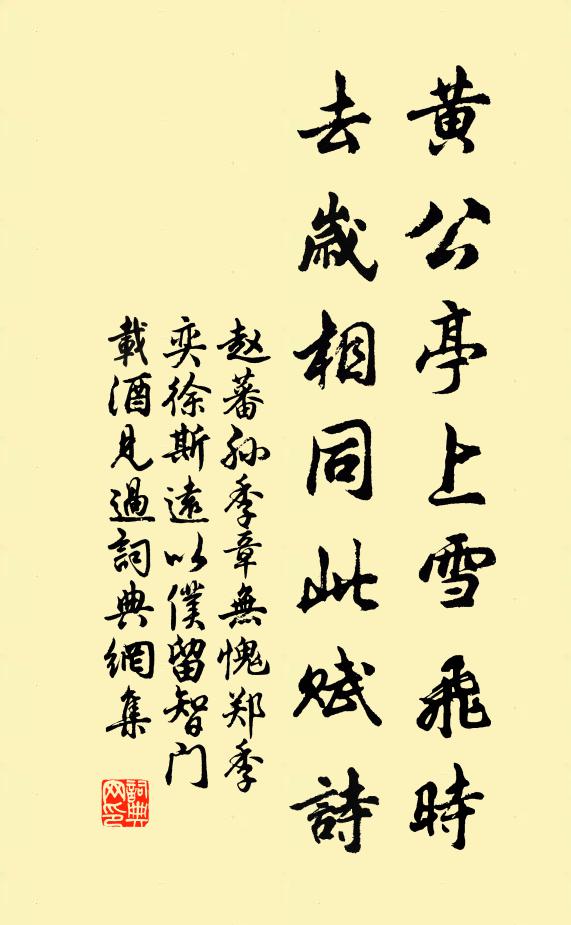 黄公亭上雪飛時
去歲相同此賦詩
赵蕃孙季章無愧郑季
奕徐斯遠以僕留智门
載酒見過詞典網集
詞典网印